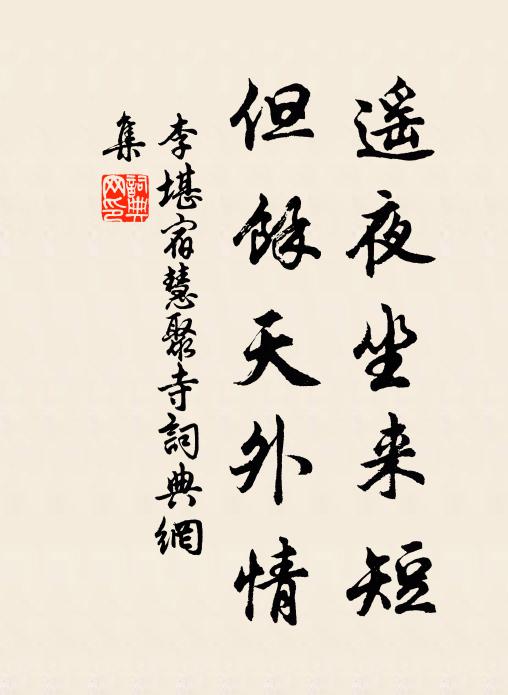 遥夜坐来短
但餘天外情
李堪宿慧聚寺詞典網
集
詞典網印